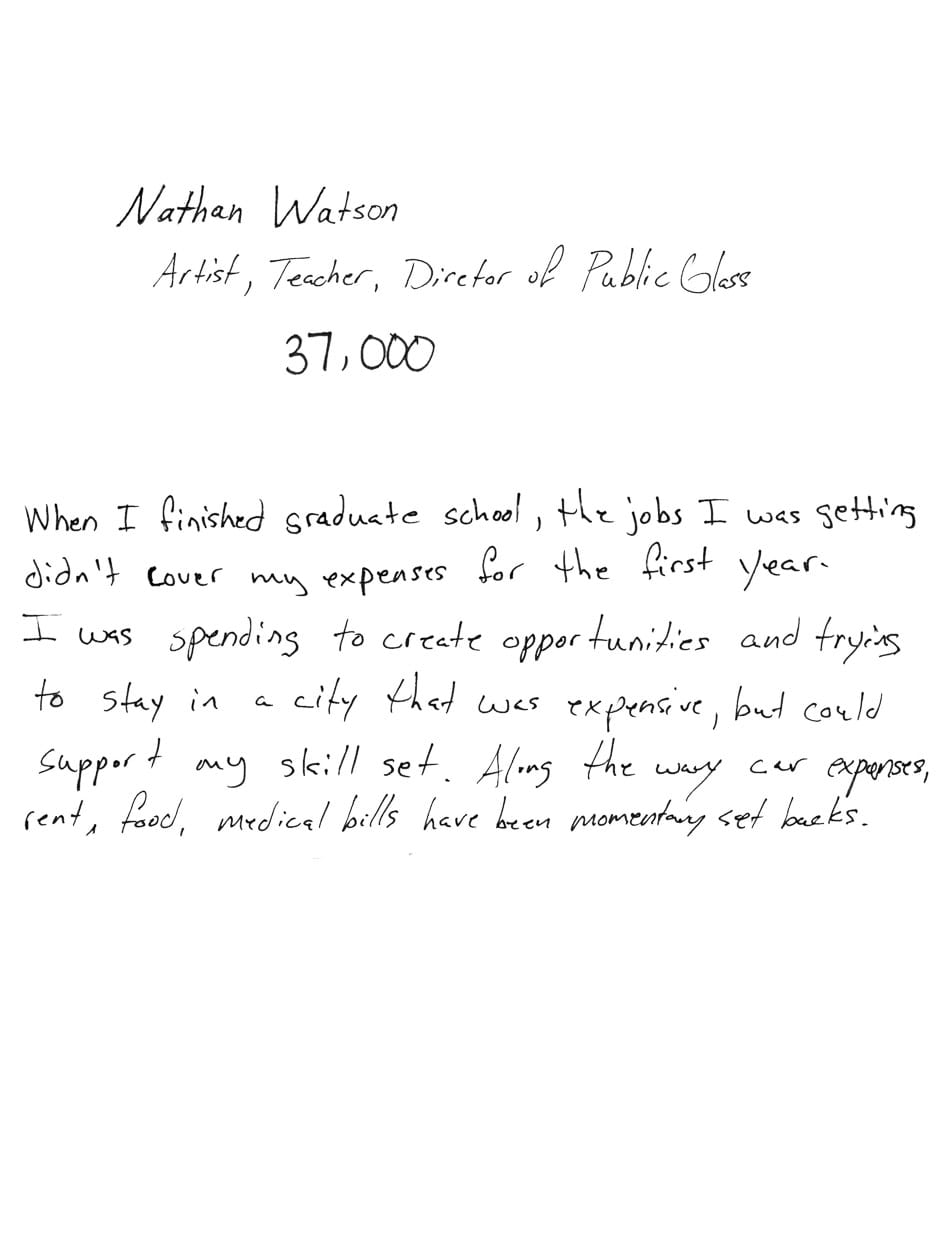 Nathan Watson
Artist, Teacher, Director of Public Glass
37,000
When I finished graduate school, the jobs I was getting
didn't cover my expenses for the first year.
I was spending to create opportunities and trying
to stay in a city that was expensive, but could
support my skill set. Along the way car expenses,
rent, food, medical bills have been momentary set backs.